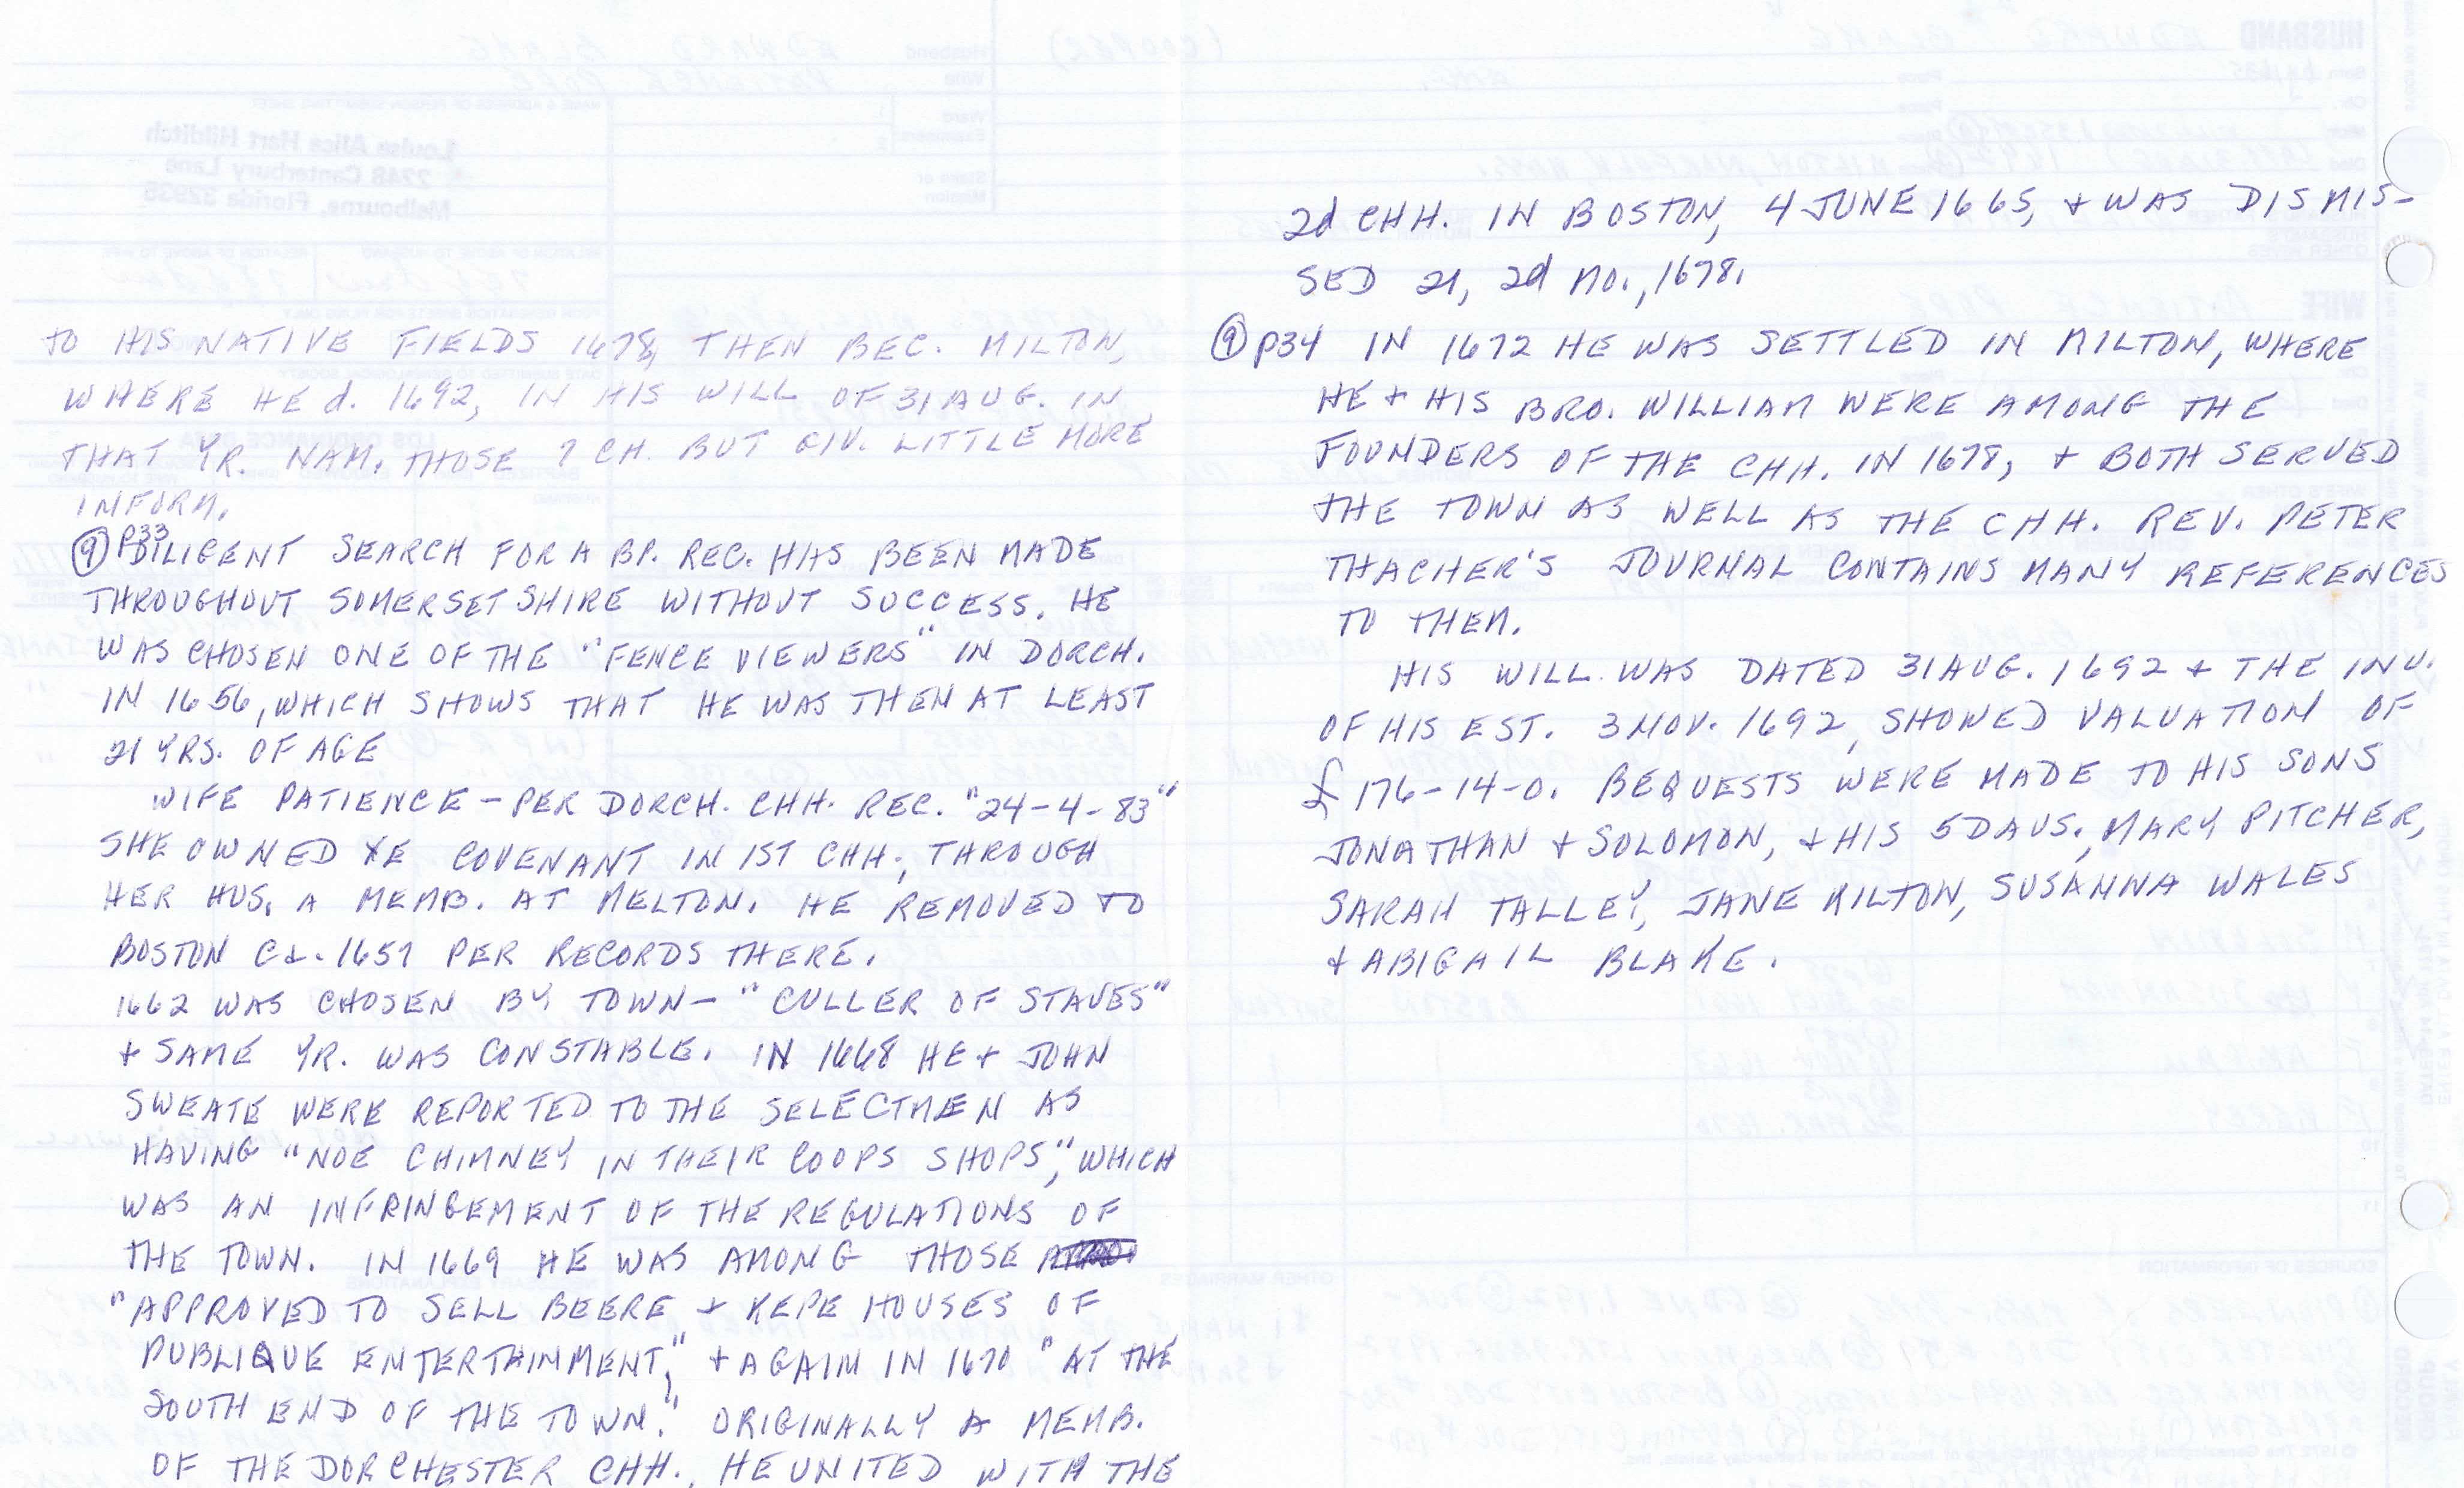 TO HIS NATIVE FIELDS 1678, THEN BEC. MILTON,
WHERE HE d. 1692, IN HIS WILL OF 31 AUG. IN
THAT YR. NAM. THOSE 7 CH. BUT GIV. LITTLE MORE
INFORM.
⑨ P33 DILIGENT SEARCH FOR A BP. REC. HAS BEEN MADE
THROUGHOUT SOMERSETSHIRE WITHOUT SUCCESS. HE
WAS CHOSEN ONE OF THE "FENCE VIEWERS" IN DORCH.
IN 1656, WHICH SHOWS THAT HE WAS THEN AT LEAST
21 YRS. OF AGE
WIFE PATIENCE - PER DORCH. CHH. REC. "24-4-83"
SHE OWNED YE COVENANT IN 1ST CHH., THROUGH
HER HUS. A MEMB. AT MELTON. HE REMOVED TO
BOSTON Ca. 1657 PER RECORDS THERE.
1662 WAS CHOSEN BY TOWN - "CULLER OF STAVES"
+ SAME YR. WAS CONSTABLE. IN 1668 HE + JOHN
SWEATE WERE REPORTED TO THE SELECTMEN AS
HAVING "NOE CHIMNEY IN THEIR COOPS SHOPS", WHICH
WAS AN INFRINGEMENT OF THE REGULATIONS OF
THE TOWN. IN 1669 HE WAS AMONG THOSE
"APPROVED TO SELL BEERE + KEPE HOUSES OF
PUBLIQUE ENTERTAINMENT," + AGAIN IN 1670 "AT THE
SOUTH END OF THE TOWN." ORIGINALLY A MEMB.
OF THE DORCHESTER CHH., HE UNITED WITH THE
2d CHH. IN BOSTON, 4 JUNE 1665, + WAS DISMIS-
SED 21, 2d MO., 1678.
⑨ P34 IN 1672 HE WAS SETTLED IN MILTON, WHERE
HE + HIS BRO. WILLIAM WERE AMONG THE
FOUNDERS OF THE CHH. IN 1678, + BOTH SERVED
THE TOWN AS WELL AS THE CHH. REV. PETER
THACHER'S JOURNAL CONTAINS MANY REFERENCES
TO THEM.
HIS WILL WAS DATED 31 AUG. 1692 + THE INV.
OF HIS EST. 3 NOV. 1692, SHOWED VALUATION OF
£176-14-0. BEQUESTS WERE MADE TO HIS SONS
JONATHAN + SOLOMON, + HIS 5 DAUS., MARY PITCHER,
SARAH TALLEY, JANE KILTON, SUSANNA WALES
+ ABIGAIL BLAKE.